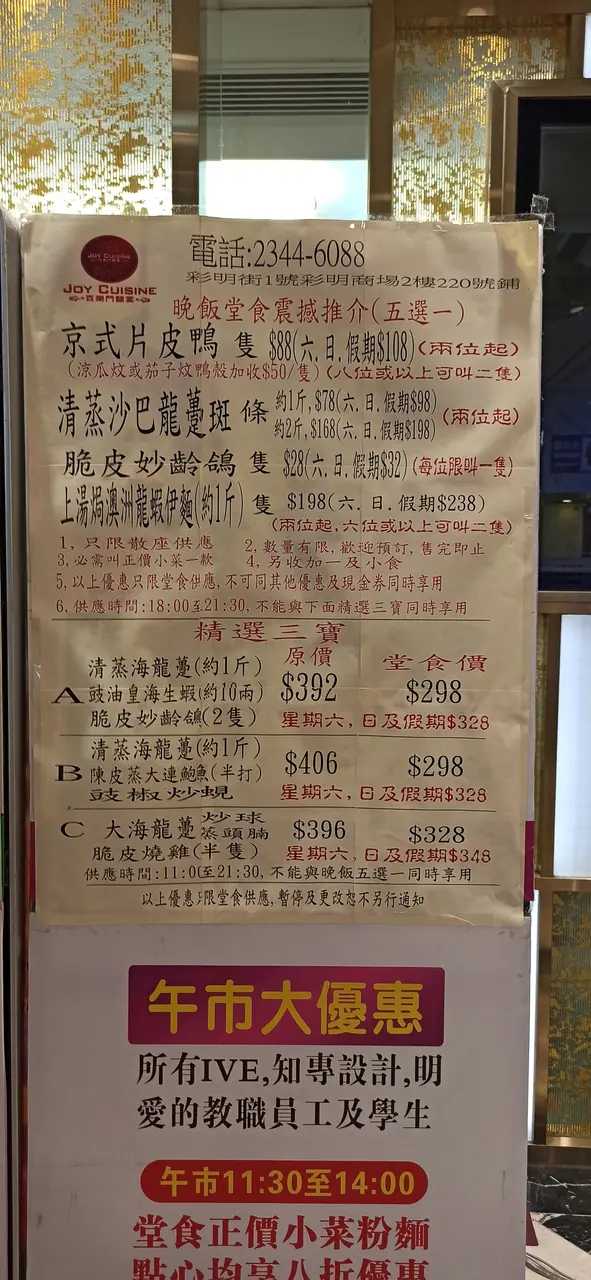 JOY CUISINE
JOY CUISINE
百樂門囍宴
電話:2344-6088
彩明街1號彩明商場2樓220號鋪
晚飯堂食震撼推介(五選一)
京式片皮鴨 隻 $88(六.日.假期$108)(兩位起)
(涼瓜炆或茄子炆鴨殼加收$50/隻)(八位或以上可叫二隻)
清蒸沙巴龍躉斑 條 約1斤,$78(六.日.假期$98)
約2斤,$168(六.日.假期$198)
(兩位起)
脆皮妙齡鴿 隻 $28(六.日.假期$32)(每位限叫一隻)
上湯焗澳洲龍蝦伊麵(約1斤) 隻 $198(六.日.假期$238)
(兩位起,六位或以上可叫二隻)
1, 只限散座供應 2, 數量有限,歡迎預訂,售完即止
3, 必需叫正價小菜一款 4, 另收加一及小食
5, 以上優惠只限堂食供應,不可同其他優惠及現金券同時享用
6, 供應時間:18:00至21:30,不能與下面精選三寶同時享用
精選三寶
原價 堂食價
A 清蒸海龍躉(約1斤)
豉油皇海生蝦(約10兩) $392 $298
脆皮妙齡鴿(2隻) 星期六,日及假期$328
B 清蒸海龍躉(約1斤)
陳皮蒸大連鮑魚(半打) $406 $298
豉椒炒蜆 星期六,日及假期$328
C 大海龍躉 炒球 蒸頭腩 $396 $328
脆皮燒雞(半隻) 星期六,日及假期$348
供應時間:11:00至21:30,不能與晚飯五選一同時享用
以上優惠只限堂食供應,暫停及更改恕不另行通知
午市大優惠
所有IVE,知專設計,明
愛的教職員工及學生
午市11:30至14:00
堂食正價小菜粉麵
點心均享八折優惠